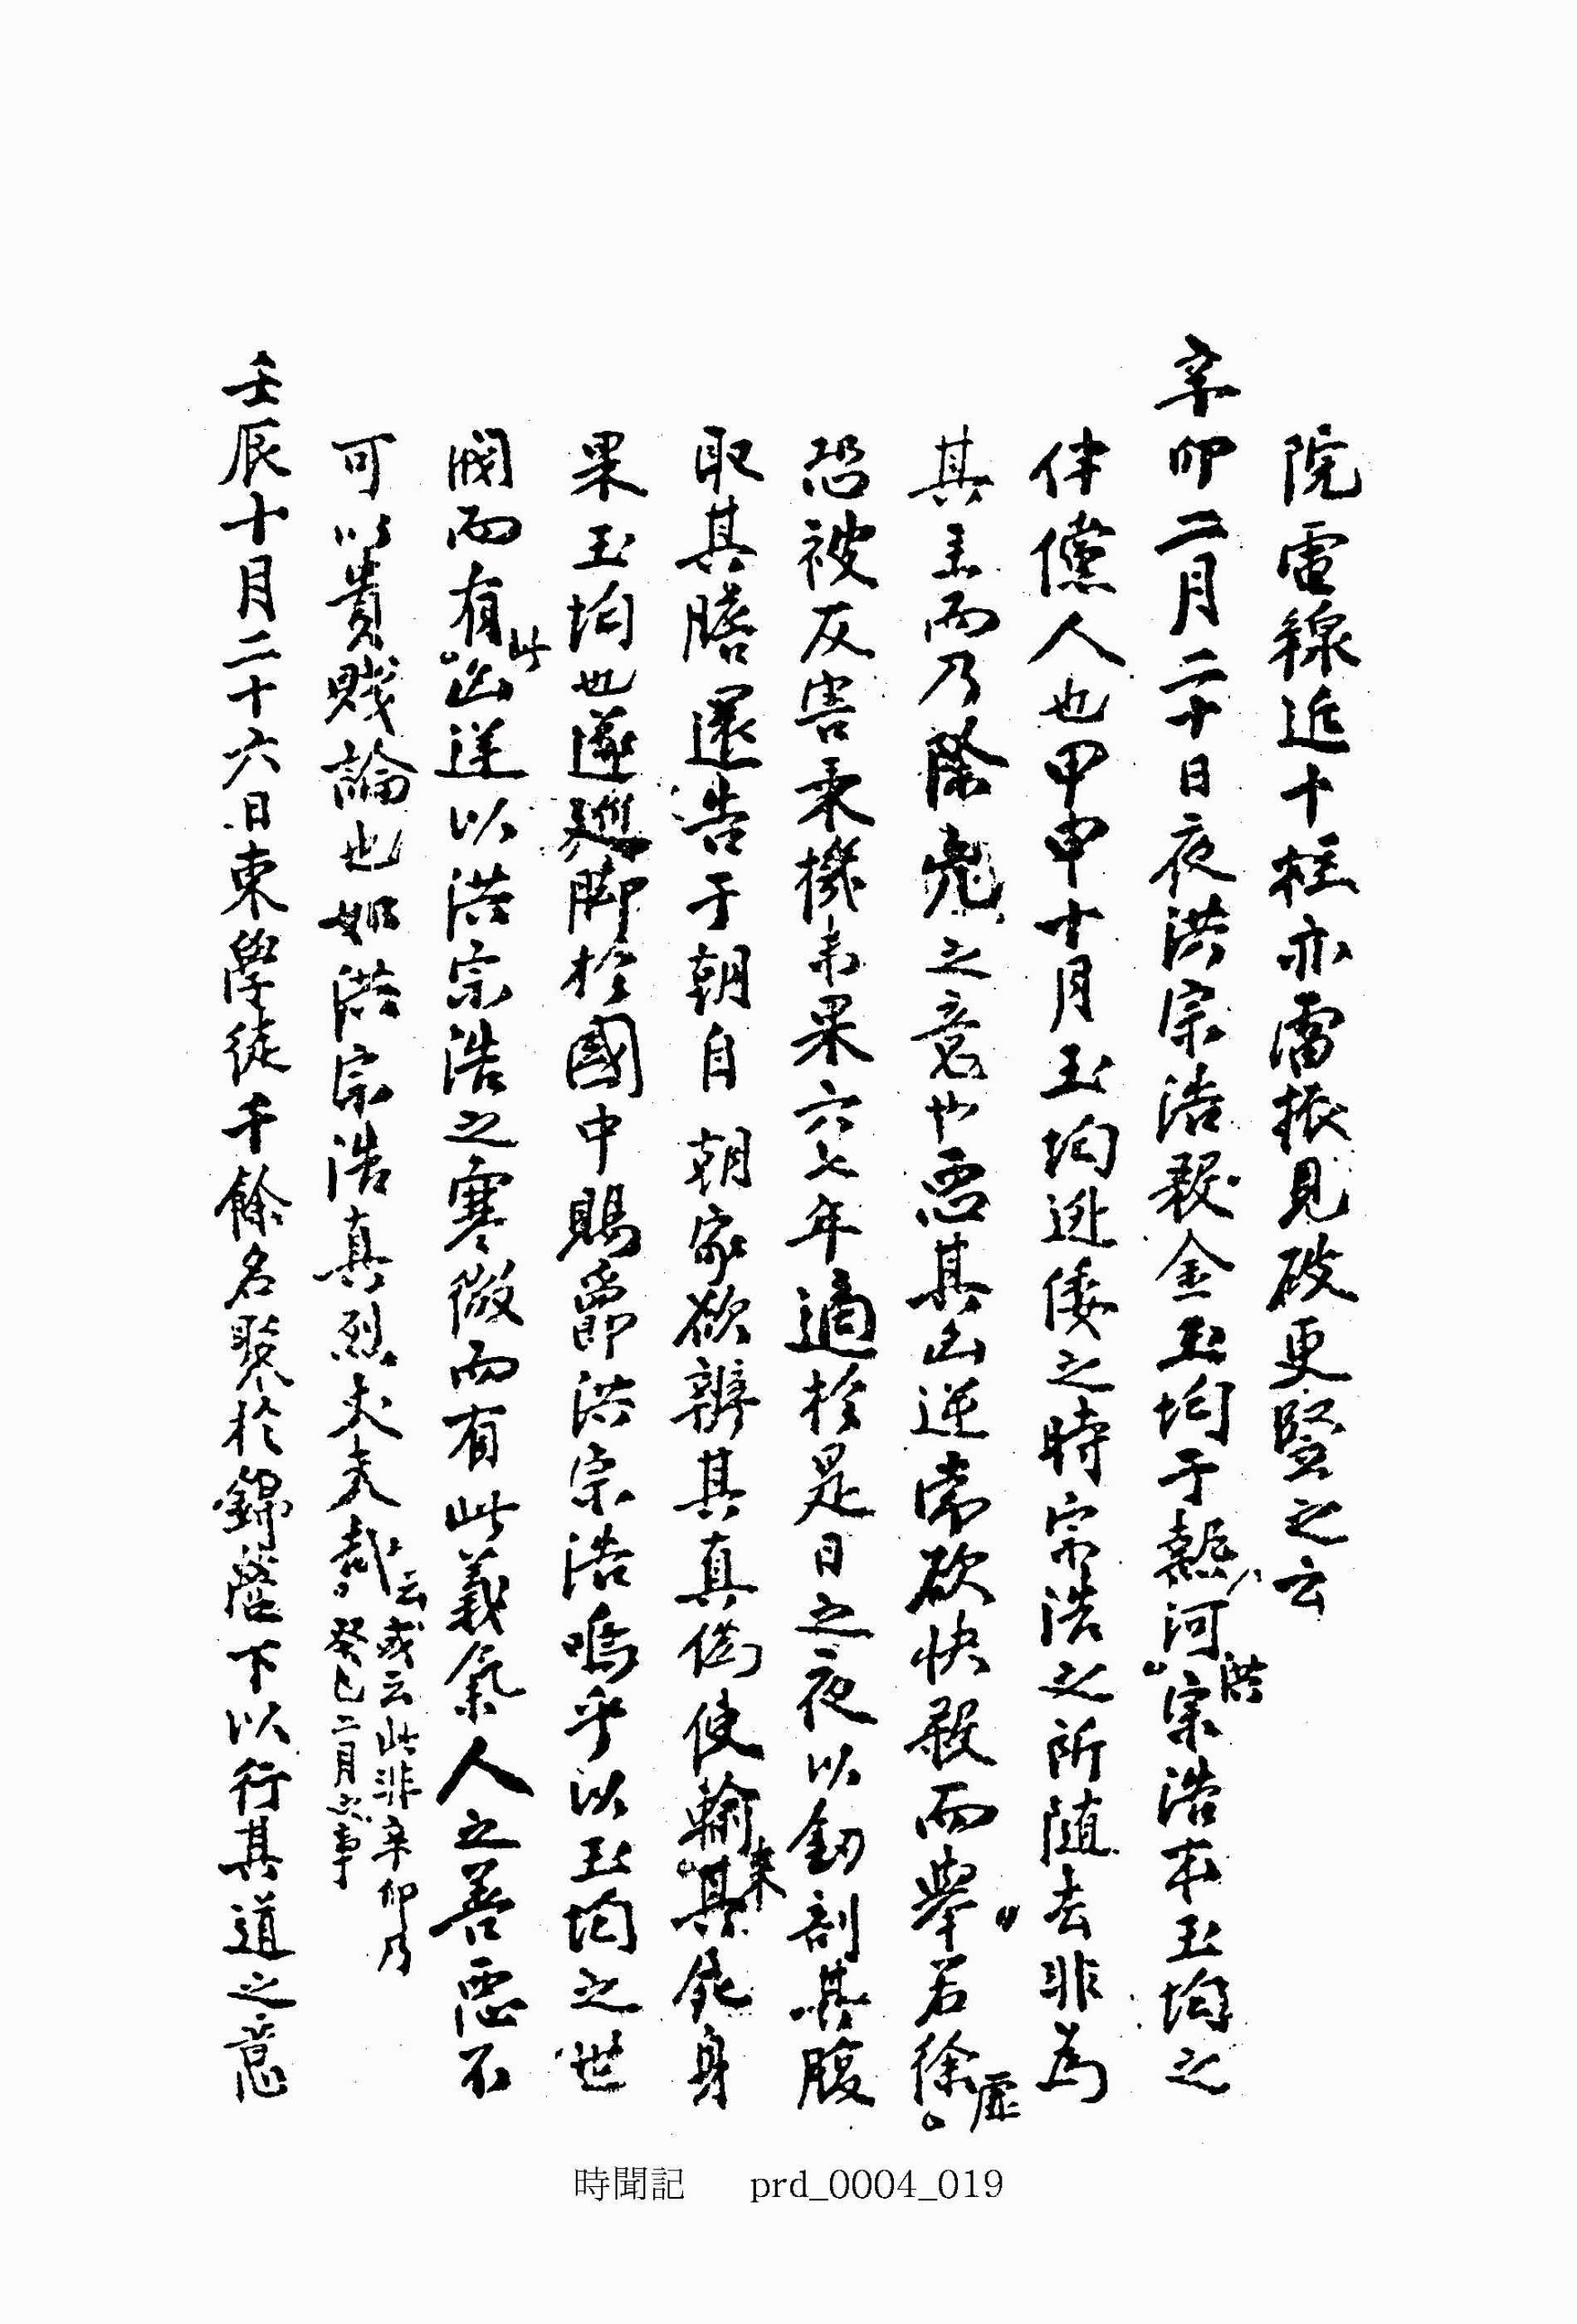 院電線近十柱亦雷振見破更竪之云
辛卯二月二十日夜洪宗浩殺金玉均于熱河洪宗浩本玉均之
伴儻人也甲申十月玉均逃倭之時宗浩之所随去非為
其主而乃除鬼之意也惡其凶逆常欲快殺而擧若徐虛
恐被反害乘機未果六七年適於是日之夜以釰剖其腹
取其膽還告于朝自朝家欲辨其真僞使輸来其死身
果玉均也遂廵脚於國中賜爵洪宗浩嗚乎以玉均之世
閥而有此凶逆以洪宗浩之寒微而有此義氣人之善惡不
可以貴賤論也如洪宗浩真烈丈夫哉云或云此非辛卯乃
癸巳二月之事
壬辰十月二十六日東學徒千餘名聚於錦營下以行其道之意
時聞記 prd_0004_019